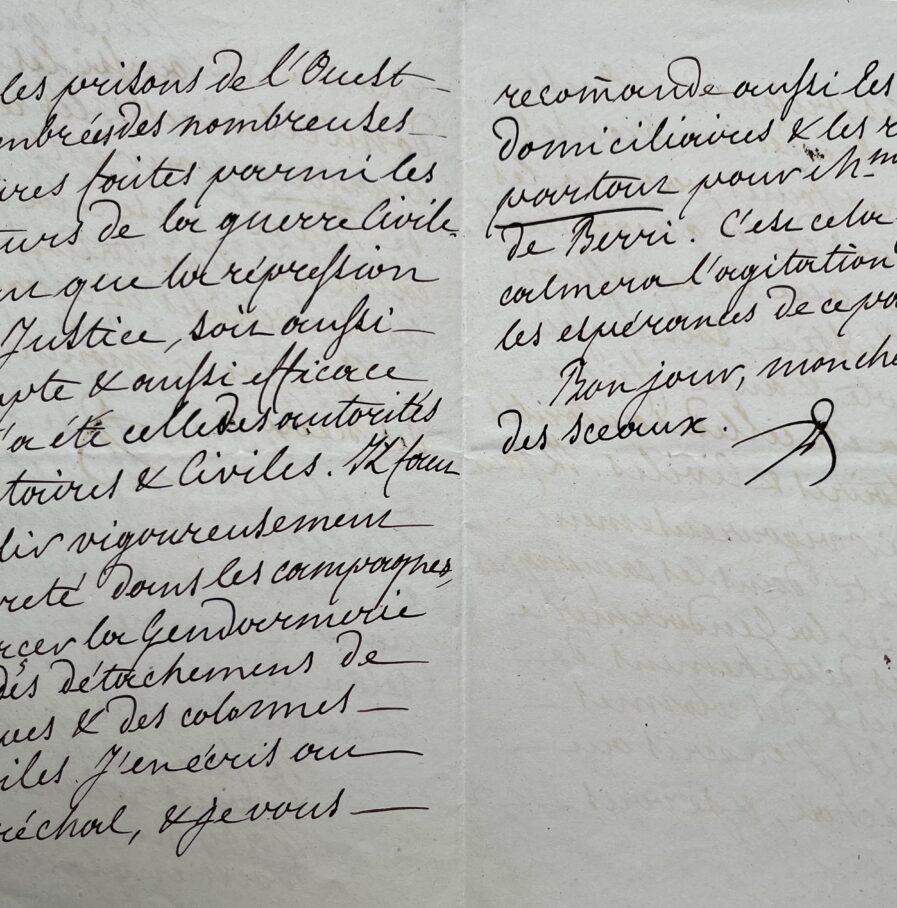 les prisons de l'Ouest
mbrées des nombreuses
ures faites parmi les
turs de la guerre Civile.
que la répression
Justice, soit aussi
mpte & aussi efficace
l'a été celle des autorités
itaires & Civiles. Il faut
blir vigoureusement
reté dans les campagnes,
rcer la Gendarmerie
des détachemens de
ques & des colonnes
iles. J'en écris au
réchal, & je vous
recomande aussi les
domiciliaires & les r
partout pour Mm
de Berri. C'est cela
calmera l'agitation
les espérances de ce pa
Bonjour, mon che
des sceaux.